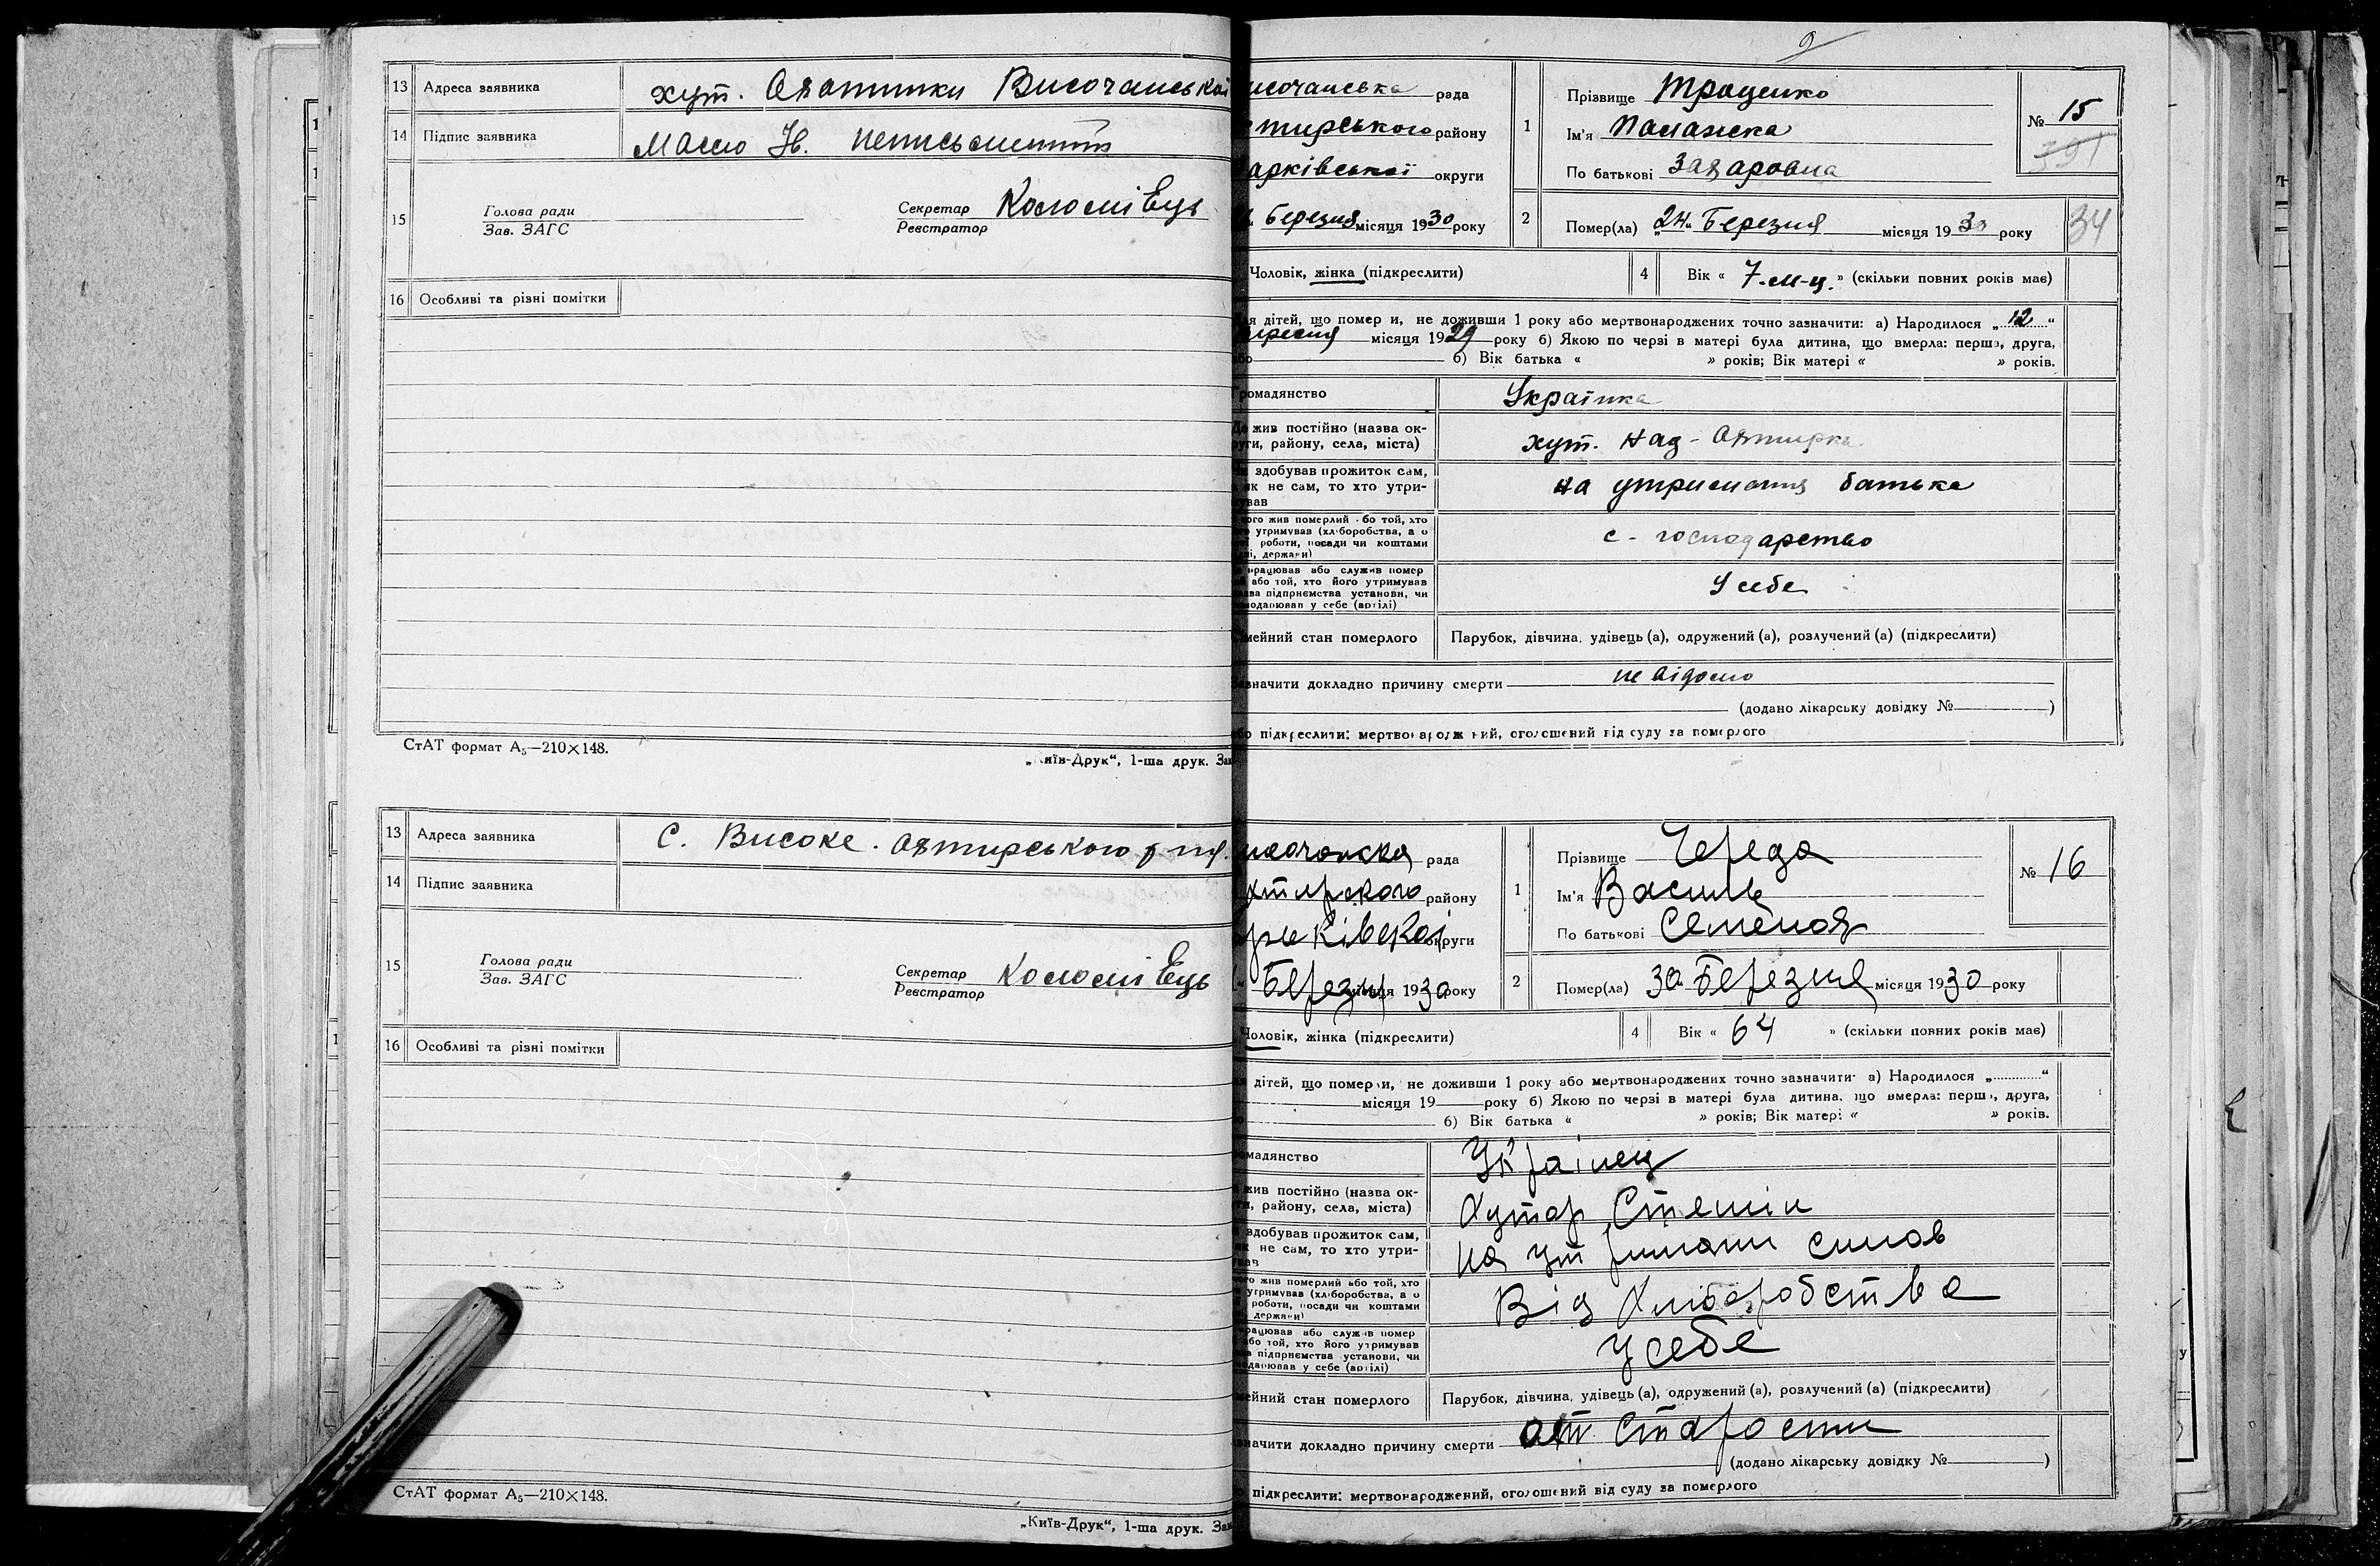 13 Адреса заявника хут. Охотники Височанської
14 Підпис заявника неписьменний
15 Голова ради
Зав. ЗАГС
Секретар Коломієць
Реєстратор
16 Особливі та різні помітки
СтАТ формат А₅—210×148.
„Київ-Друк“, 1-ша друк. Зак
13 Адреса заявника С. Високе. Охтирського
14 Підпис заявника
15 Голова ради
Зав. ЗАГС
Секретар Коломієць
Реєстратор
16 Особливі та різні помітки
СтАТ формат А₅—210×148.
„Київ-Друк“, 1-ша друк. Зак
9
исочанська рада
тирського району
арківської округи
Березня місяця 1930 року
1 Прізвище Троценко
Ім'я Палажка
По батькові Захаровна
№ 15
391
2 Помер(ла) „24“ Березня місяця 1930 року
34
Чоловік, жінка (підкреслити)
4 Вік « 7-м-ц. » (скільки повних років має)
я дітей, що померли, не доживши 1 року або мертвонароджених точно зазначити: а) Народилося „12“
ересня місяця 1929 року б) Якою по черзі в матері була дитина, що вмерла: перша, друга,
або б) Вік батька « » років; Вік матері « » років.
Громадянство Українка
Де жив постійно (назва ок-
руги, район, села, міста) хут. над-Охтирка
здобував прожиток сам,
як не сам, то хто утри-
мував на утримання батька
ого жив померлий або той, хто
утримував (хліборобства, а о
роботи, посади чи коштами
держави) с-господарство
працював або служив помер
або той, хто його утримував
ва підприємства установи, чи
подарював у себе (артілі) У себе
мейний стан померлого Парубок, дівчина, удівець (а), одружений (а), розлучений (а) (підкреслити)
Зазначити докладно причину смерти не відомо
(додано лікарську довідку № )
або підкреслити: мертвонароджений, оголошений від суду за померлого
исочанская рада
хтирского району
рьківскої округи
Березня місяця 1930 року
1 Прізвище Череда
Ім'я Василь
По батькові Семенов
№ 16
2 Помер(ла) 30 Березня місяця 1930 року
Чоловік, жінка (підкреслити)
4 Вік « 64 » (скільки повних років має)
я дітей, що померли, не доживши 1 року або мертвонароджених точно зазначити: а) Народилося „ “
місяця 19 року б) Якою по черзі в матері була дитина, що вмерла: перша, друга,
б) Вік батька « » років; Вік матері « » років.
омадянство Українец
жив постійно (назва ок-
ги, району, села, міста) Хутор
здобував прожиток сам,
не сам, то хто утри-
ував на утримани синов
го жив померлий або той, хто
утримував (хліборобства, а о
роботи, посади чи коштами
держави) Від Хлиборобства
працював або служив помер
або той, хто його утримував
а підприємства установи, чи
одарював у себе (артілі) у себе
мейний стан померлого Парубок, дівчина, удівець (а), одружений (а), розлучений (а) (підкреслити)
значити докладно причину смерти от старости
(додано лікарську довідку № )
підкреслити: мертвонароджений, оголошений від суду за померлого